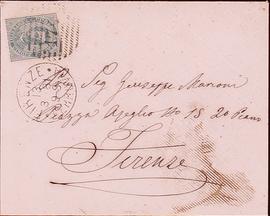 FIRENZE
Sig Giuseppe Marconi
Piazza Azeglio No 15 20 Piano
Firenze